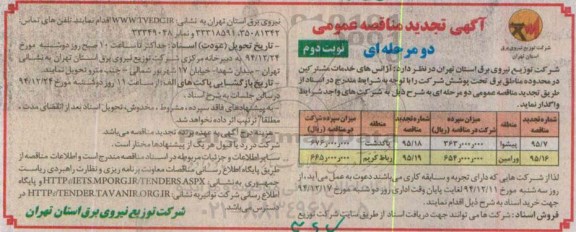 آگهی تجدید مناقصه عمومی
دو مرحله ای
نوبت دوم
شرکت توزیع نیروی برق استان تهران
شرکت توزیع نیروی برق استان تهران در نظر دارد: آژانس های خدمات مشترکین
در محدوده مناطق برق تحت پوشش شرکت را با توجه به شرایط مندرج در اسناد از
طریق تجدید مناقصه عمومی دو مرحله ای به شرح ذیل به شرکت های واجد شرایط
واگذار نماید.
شماره تجدید مناقصه منطقه میزان سپرده شرکت در مناقصه (ریال) شماره تجدید مناقصه منطقه میزان سپرده شرکت در مناقصه (ریال)
۹۵/۷ پیشوا ۳۶۳,۰۰۰,۰۰۰ ۹۵/۱۸ پاکدشت ۶۷۶,۰۰۰,۰۰۰
۹۵/۱۶ ورامین ۶۵۴,۰۰۰,۰۰۰ ۹۵/۱۹ رباط کریم ۶۶۵,۰۰۰,۰۰۰
لذا از شرکت هایی که دارای تجربه و سابقه کاری می باشند دعوت به عمل می آید، از
روز سه شنبه مورخ ۹۴/۱۲/۱۱ لغایت پایان وقت اداری روز دوشنبه مورخ ۹۴/۱۲/۱۷
جهت خرید اسناد به شرح ذیل اقدام نمایند.
فروش اسناد: شرکت ها می توانند جهت دریافت اسناد از طریق سایت شرکت توزیع
نیروی برق استان تهران به نشانی WWW.TVEDC.IR اقدام نمایند تلفن های تماس
۳۵۰۸۱۲۴۲، ۳۳۳۱۸۵۹۱ و نمابر ۳۳۳۴۹۰۳۸
- تاریخ تحویل (عودت) اسناد: حداکثر تا ساعت ۱۰ صبح روز دوشنبه مورخ
۹۴/۱۲/۲۴ به دبیرخانه مرکزی شرکت توزیع نیروی برق استان تهران به نشانی
تهران - میدان شهدا - خیابان ۱۷ شهریور شمالی - جنب مترو تحویل نمایند.
- تاریخ بازگشایی پاکت های الف: از ساعت ۱۱ روز دوشنبه مورخ ۹۴/۱۲/۲۴
- به پیشنهادهای فاقد سپرده، مشروط، مخدوش، تحویل اسناد بعد از انقضای مدت،
مطلقاً ترتیب اثر داده نخواهد شد.
- هزینه درج آگهی به عهده برنده تجدید مناقصه می باشد.
شرکت در رد یا قبول هر یک از پیشنهادها مختار است.
سایر اطلاعات و جزئیات مربوطه در اسناد مناقصه مندرج است و اطلاعات مناقصه از
طریق پایگاه اطلاع رسانی مناقصات معاونت برنامه ریزی و نظارت راهبردی ریاست
جمهوری به نشانی HTTP://IETS.MPORG.IR/TENDERS.ASPX و پایگاه
اطلاع رسانی شرکت توانیر به نشانی HTTP://TENDER.TAVANIR.ORG.IR در
دسترس می باشد.
شرکت توزیع نیروی برق استان تهران